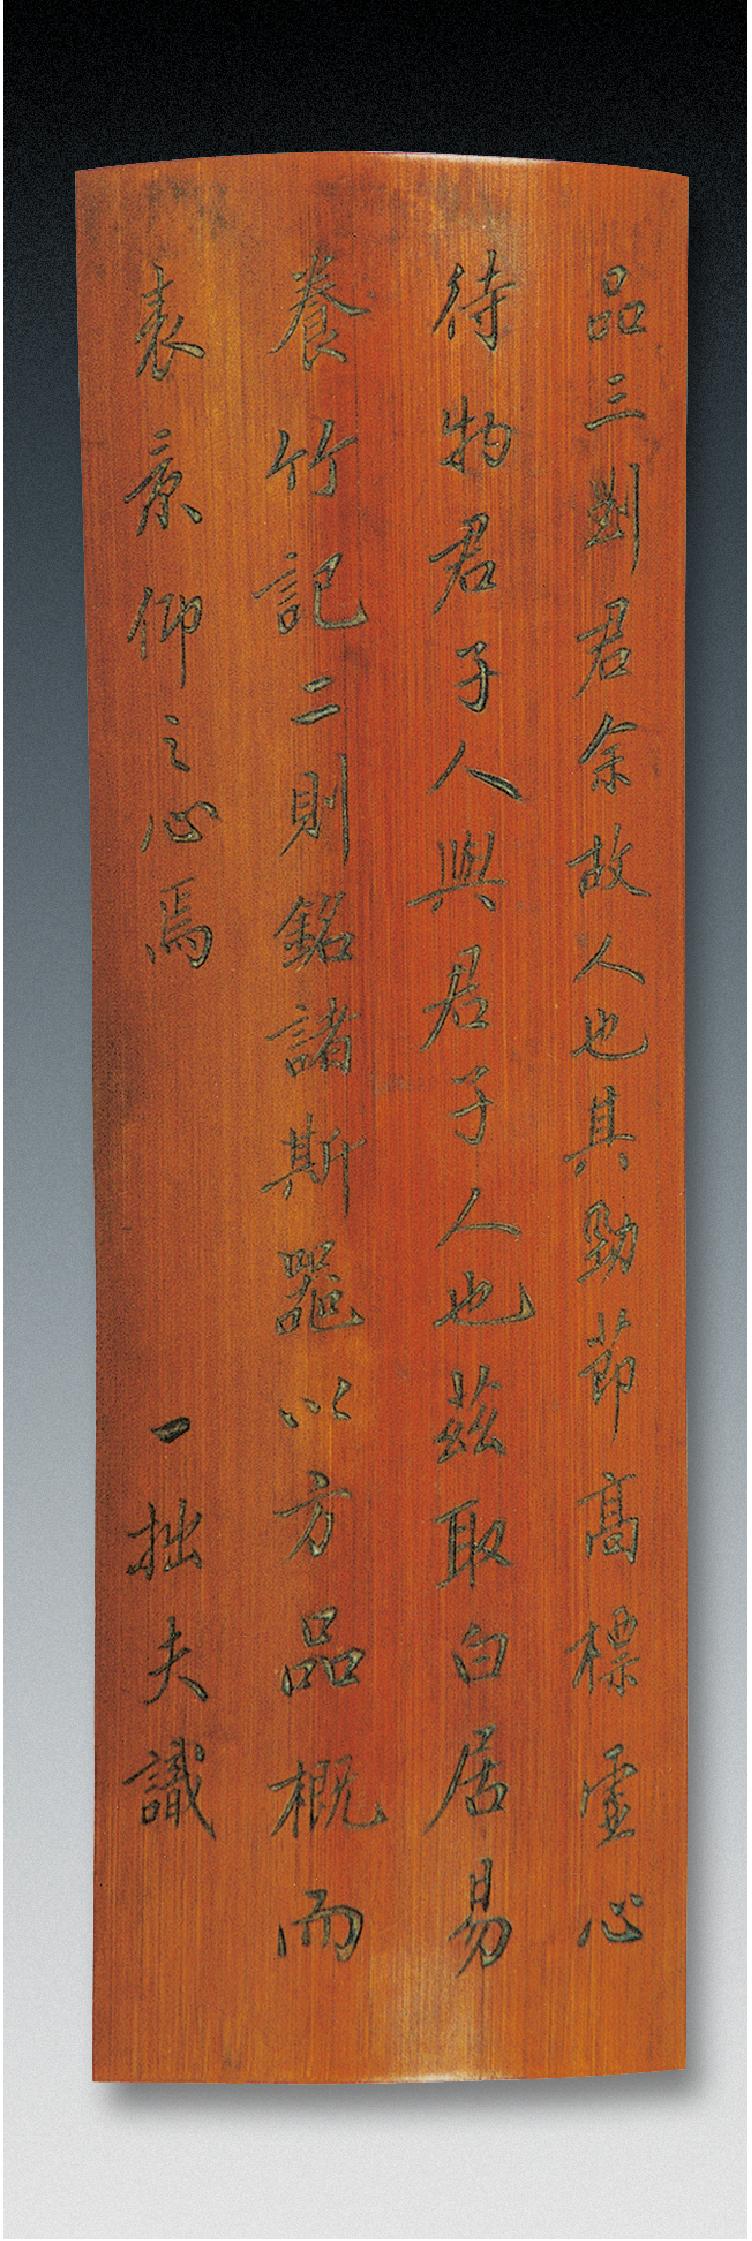 品三劉君余故人也其勁節高標虛心
待物君子人與君子人也茲取白居易
養竹記二則銘諸斯器以方品概而
表景仰之心焉　一拙夫識